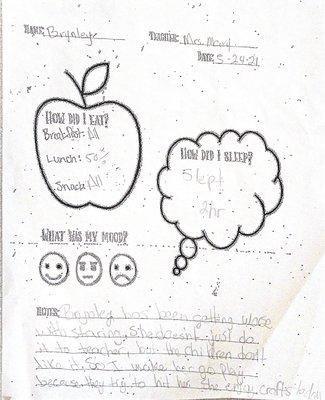 NAME: Brynley TEACHER: Mrs.
DATE: 5-24-21
HOW DID I EAT?
Breakfast: All
Lunch: 50%
Snack: All
HOW DID I SLEEP?
Slept
2hr
WHAT WAS MY MOOD?
NOTES: Brynley has been getting worse
with staring. She doesn't just do
it to teacher, but the children don't
like it, So I make her go play
because they try to hit her. She enjoy crafts